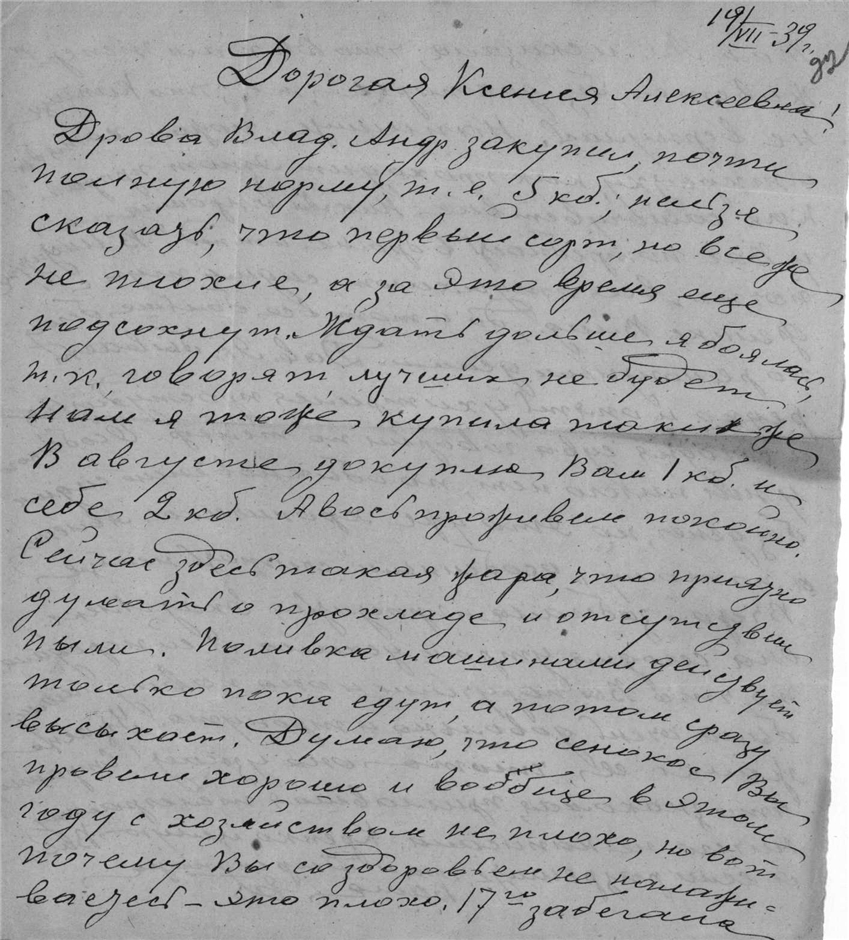 19/VII-39 г.
22
Дорогая Ксения Алексеевна!
Дрова Влад. Андр. закупил, почти
полную норму, т. е. 5 кб.; нельзя
сказать, что первый сорт, но все же
не плохие, а за это время еще
подсохнут. Ждать дольше я боялась,
т. к. говорят лучших не будет
Нам я тоже купила таких же
В августе докуплю Вам 1 кб. и
себе 2 кб. Авось проживем покойно.
Сейчас здесь такая жара, что приятно
думать о прохладе и отсутствии
пыли. Поливка машинами действует
только пока едут, а потом сразу
высыхает. Думаю, что сенокос Вы
провели хорошо и вообще в этом
году с хозяйством не плохо, но вот
почему Вы со здоровьем не налажи-
ваетесь – это плохо. 17го забегала